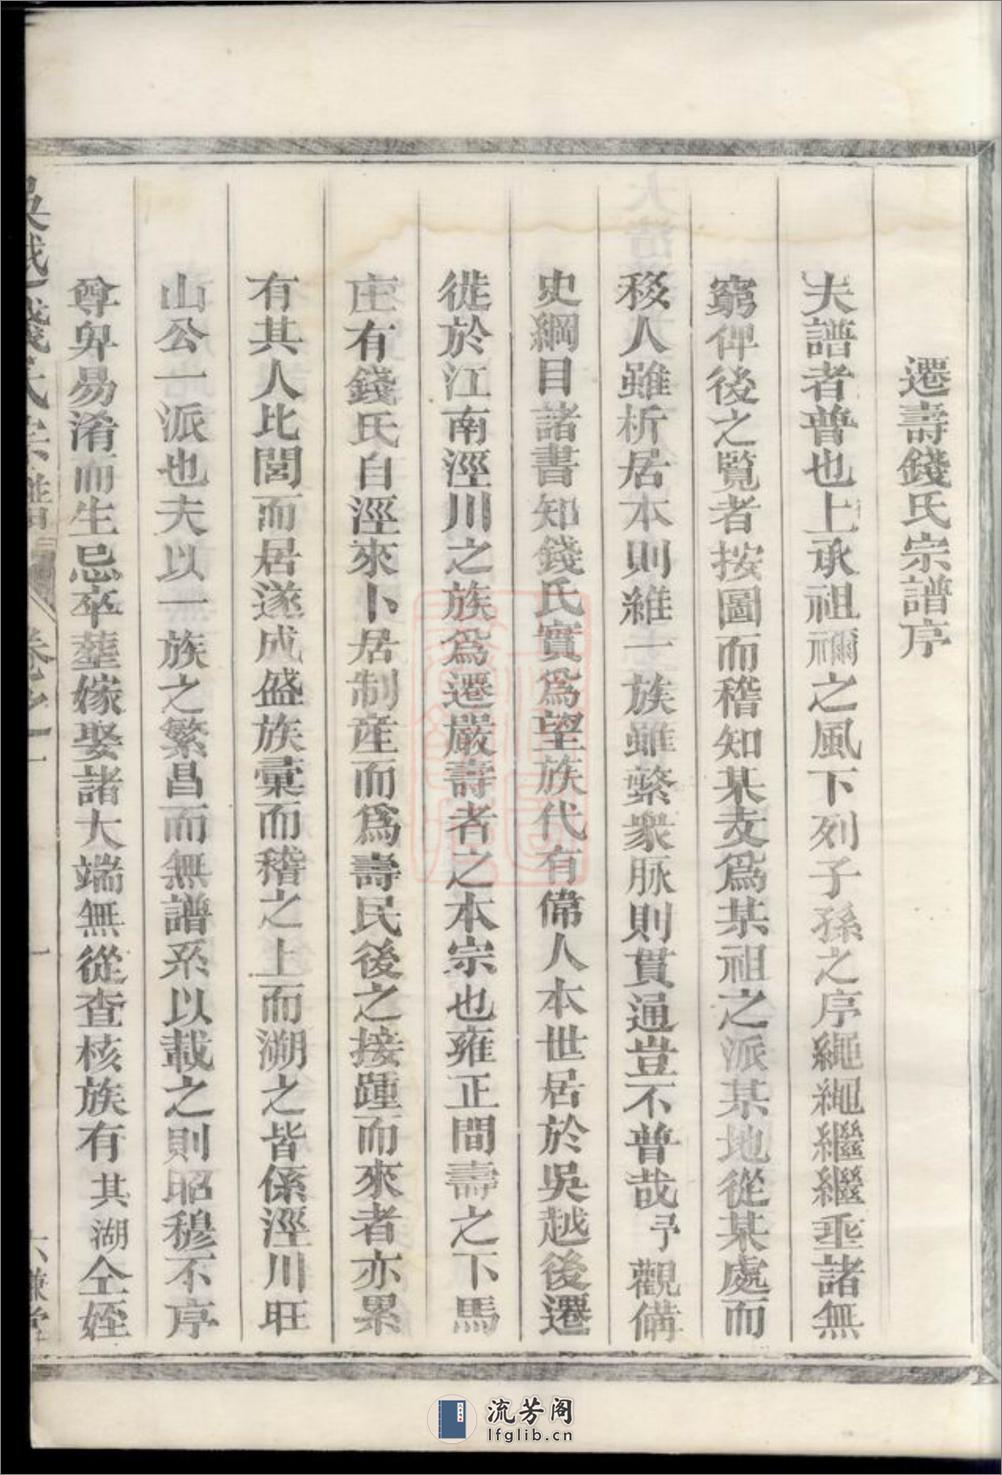 遷壽錢氏宗譜序
夫譜者普也上承祖禰之風下列子孫之序繩繩繼繼垂諸無
窮俾後之覽者按圖而稽知某支爲某祖之派某地從某處而
移人雖析居本則維一族雖繁衆脉則貫通豈不普哉予觀備
史綱目諸書知錢氏實爲望族代有偉人本世居於吳越後遷
徙於江南涇川之族爲遷嚴壽者之本宗也雍正間壽之下馬
庄有錢氏自涇來卜居制産而爲壽民後之接踵而來者亦累
有其人比閭而居遂成盛族彙而稽之上而溯之皆係涇川旺
山公一派也夫以一族之繁昌而無譜系以載之則昭穆不序
尊卑易淆而生忌卒塟嫁娶諸大端無從查核族有其湖仝姪
吳越錢氏宗譜 卷之一 一 六謙堂
流芳阁
lfglib.cn